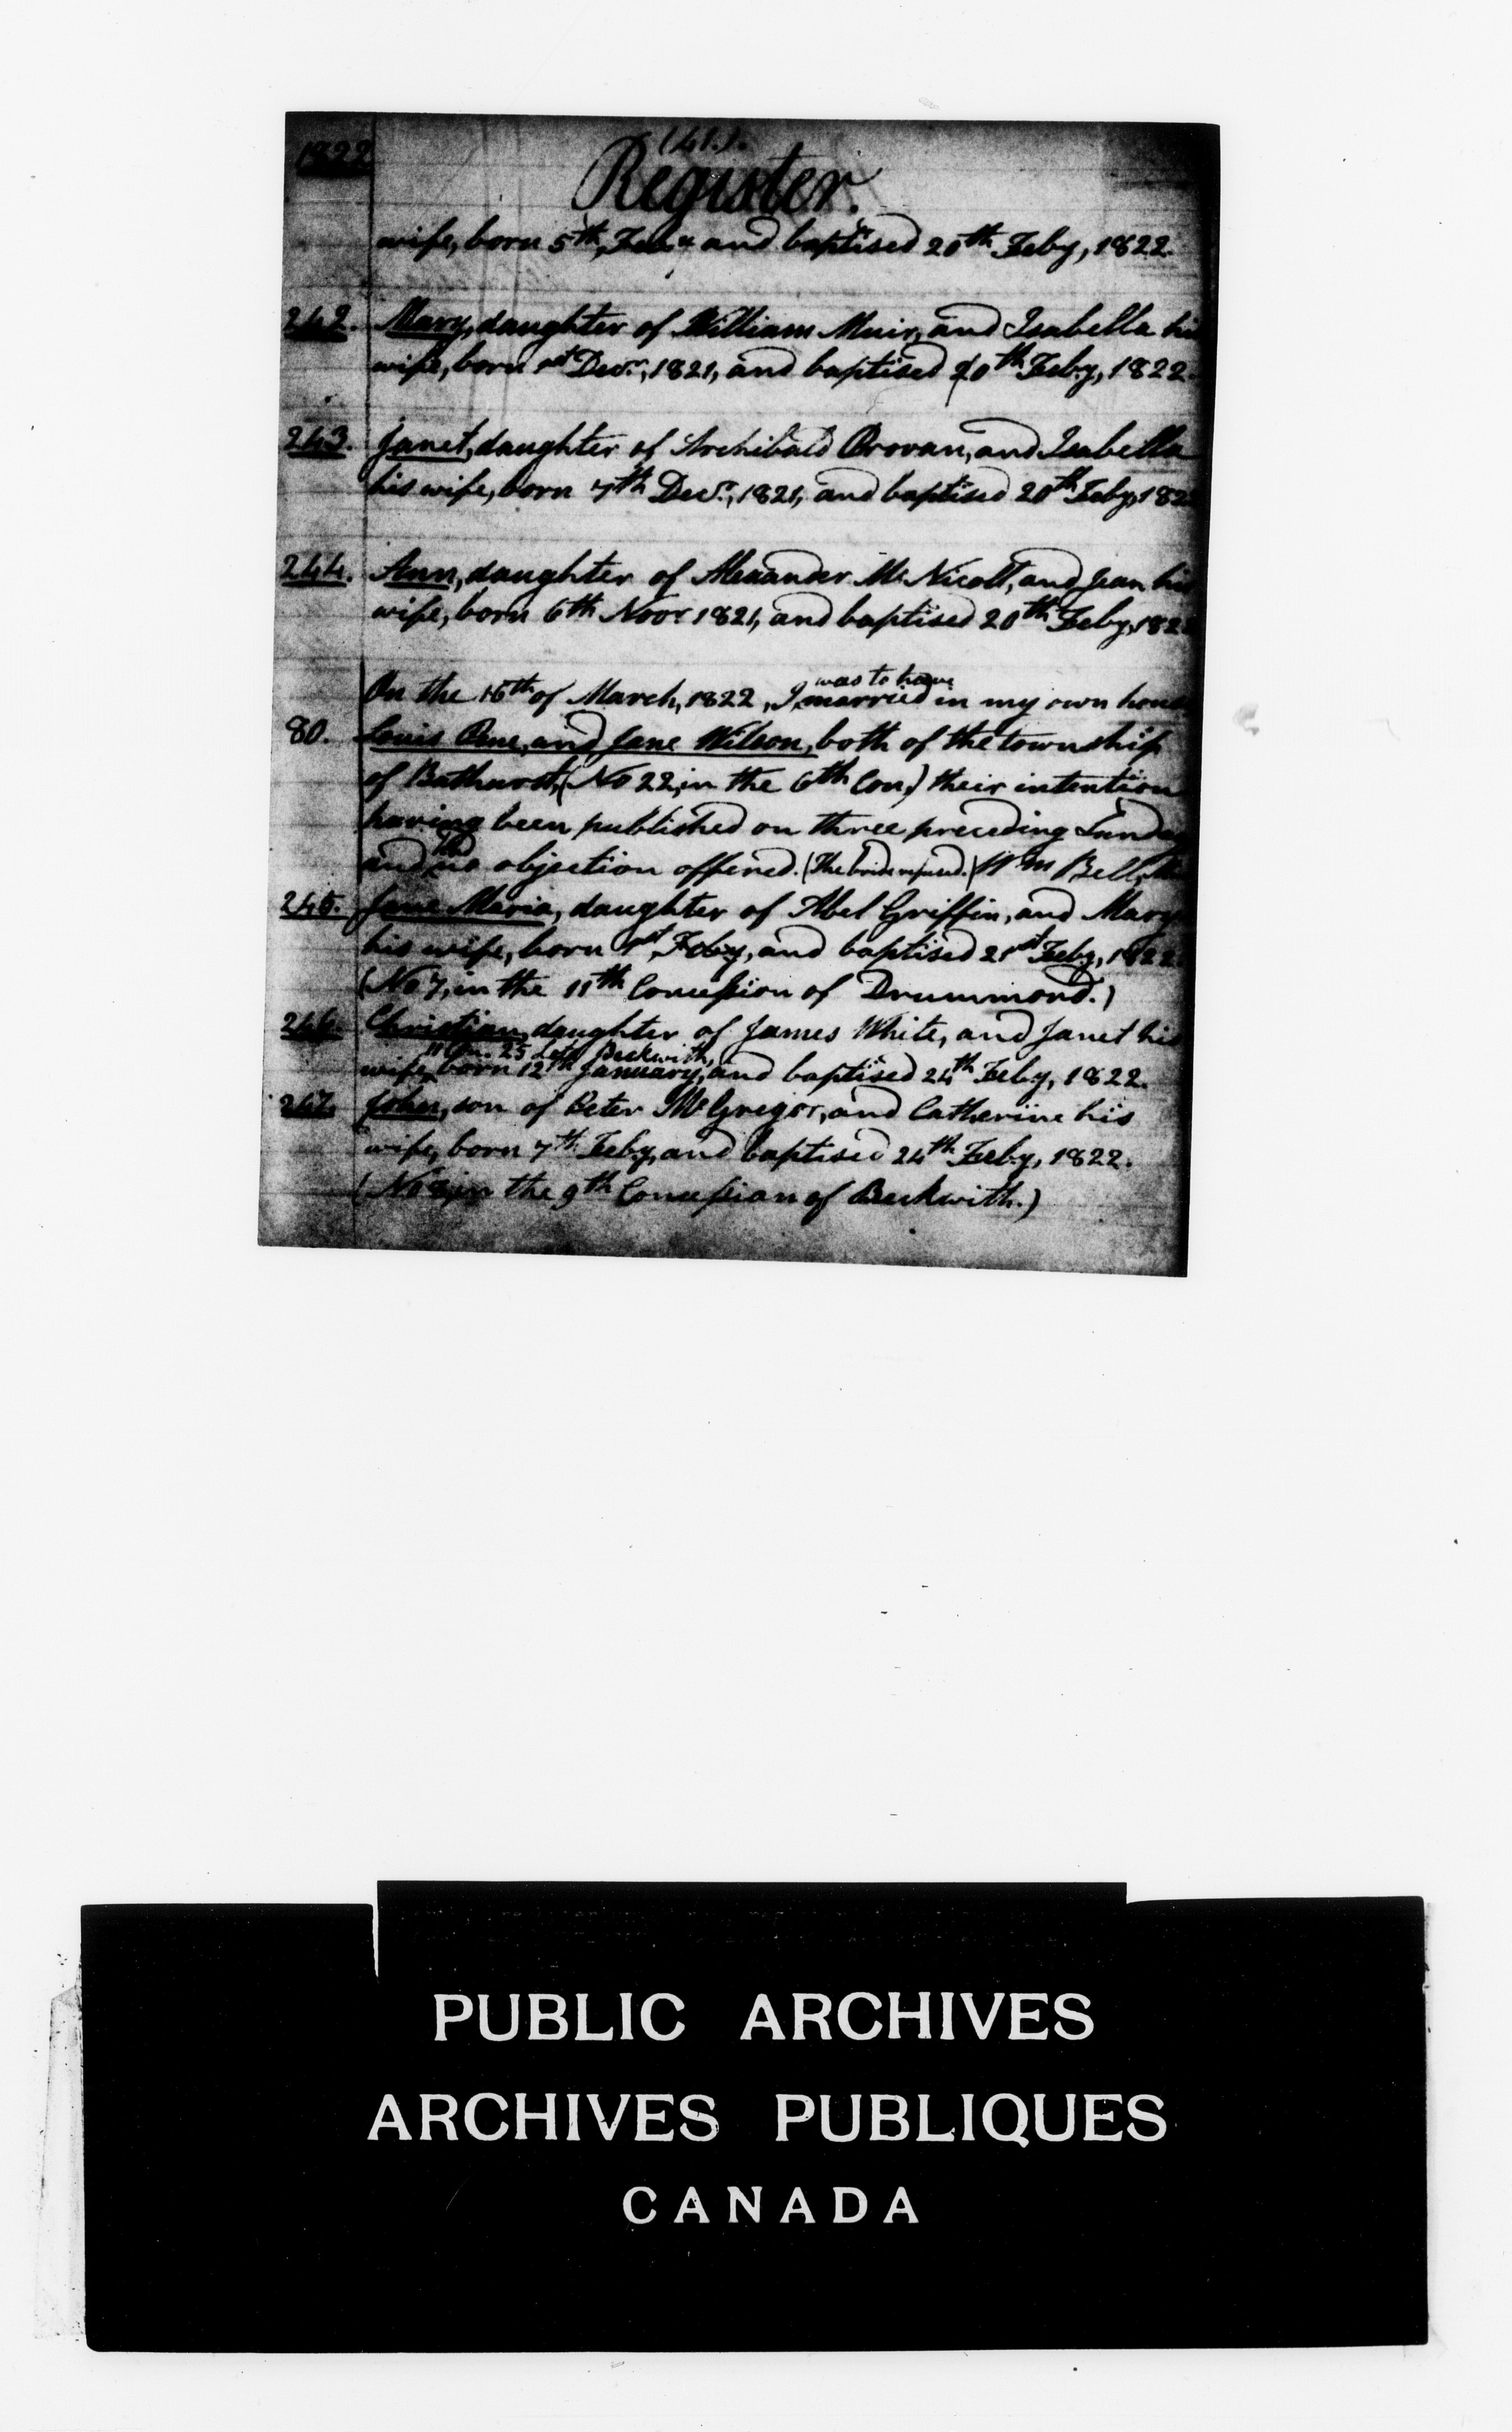 (41.)
1822
Register.
wife, born 5th Feby and baptised 20th Feby, 1822.
242. Mary, daughter of William Muir, and Isabella his
wife, born 1st Decr, 1821, and baptised 20th Feby, 1822.
243. Janet, daughter of Archibald Provan, and Isabella
his wife, born 7th Decr, 1821, and baptised 20th Feby, 182
244. Ann, daughter of Alexander McNicoll, and Jean his
wife, born 6th Novr 1821, and baptised 20th Feby, 182
was to have
On the 16th of March, 1822, I married in my own house
80. Louis and Jane Wilson, both of the township
of Bathurst, (No 22, in the 6th Con.) their intention
having been published on three preceding Sunday
and no objection offered. (The bride refused.) Wm Bell.
245. Jane Maria, daughter of Abel Griffin, and Mary
his wife, born 1st Feby, and baptised 21st Feby, 1822.
(No 7, in the 11th Concession of Drummond.)
246. Christian, daughter of James White, and Janet his
11 Con. 25 Lot Beckwith,
wife, born 12th January, and baptised 24th Feby, 1822.
247. John, son of Peter McGregor, and Catherine his
wife, born 7th Feby, and baptised 24th Feby, 1822.
(No in the 9th Concession of Beckwith.)
PUBLIC ARCHIVES
ARCHIVES PUBLIQUES
CANADA